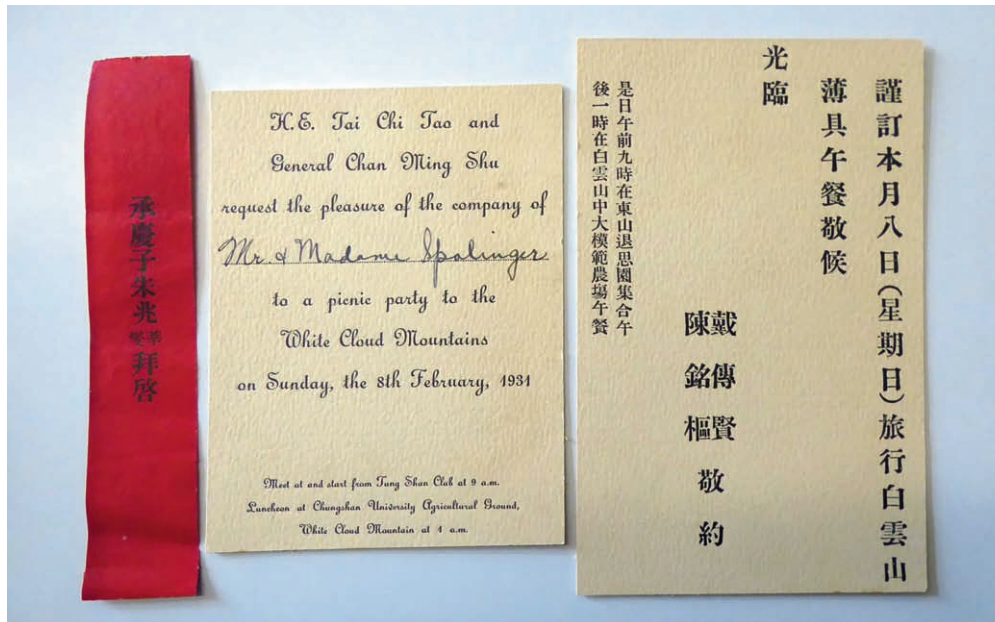 承慶子朱兆拜啓
H.E. Tai Chi Tao and
General Chan Ming Shu
request the pleasure of the company of
Mr. & Madame Spalinger
to a picnic party to the
White Cloud Mountains
on Sunday, the 8th February, 1931
Meet at and start from Tung Shan Club at 9 a.m.
Luncheon at Chungshan University Agricultural Ground,
White Cloud Mountain at 1 a.m.
謹訂本月八日(星期日)旅行白雲山
薄具午餐敬候
光臨
戴傳賢
陳銘樞
敬約
是日午前九時在東山退思園集合午
後一時在白雲山中大模範農塲午餐